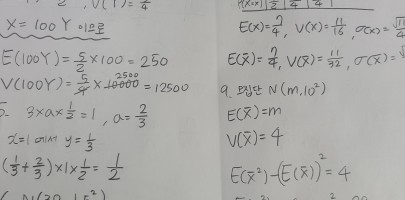 X = 100Y 이므로
E(100Y) = 5/2 × 100 = 250
V(100Y) = 5/4 × 10000 2500 = 12500
3×a×1/2 = 1, a = 2/3
x=1 에서 y = 1/3
(1/3 + 2/3) × 1 × 1/2 = 1/2
E(X) = 7/4, V(X) = 11/16, σ(X) =
E(X̄) = 7/4, V(X̄) = 11/32, σ(X̄) =
9. 모집단 N(m, 10²)
E(X̄) = m
V(X̄) = 4
E(X̄²) - (E(X̄))² = 4